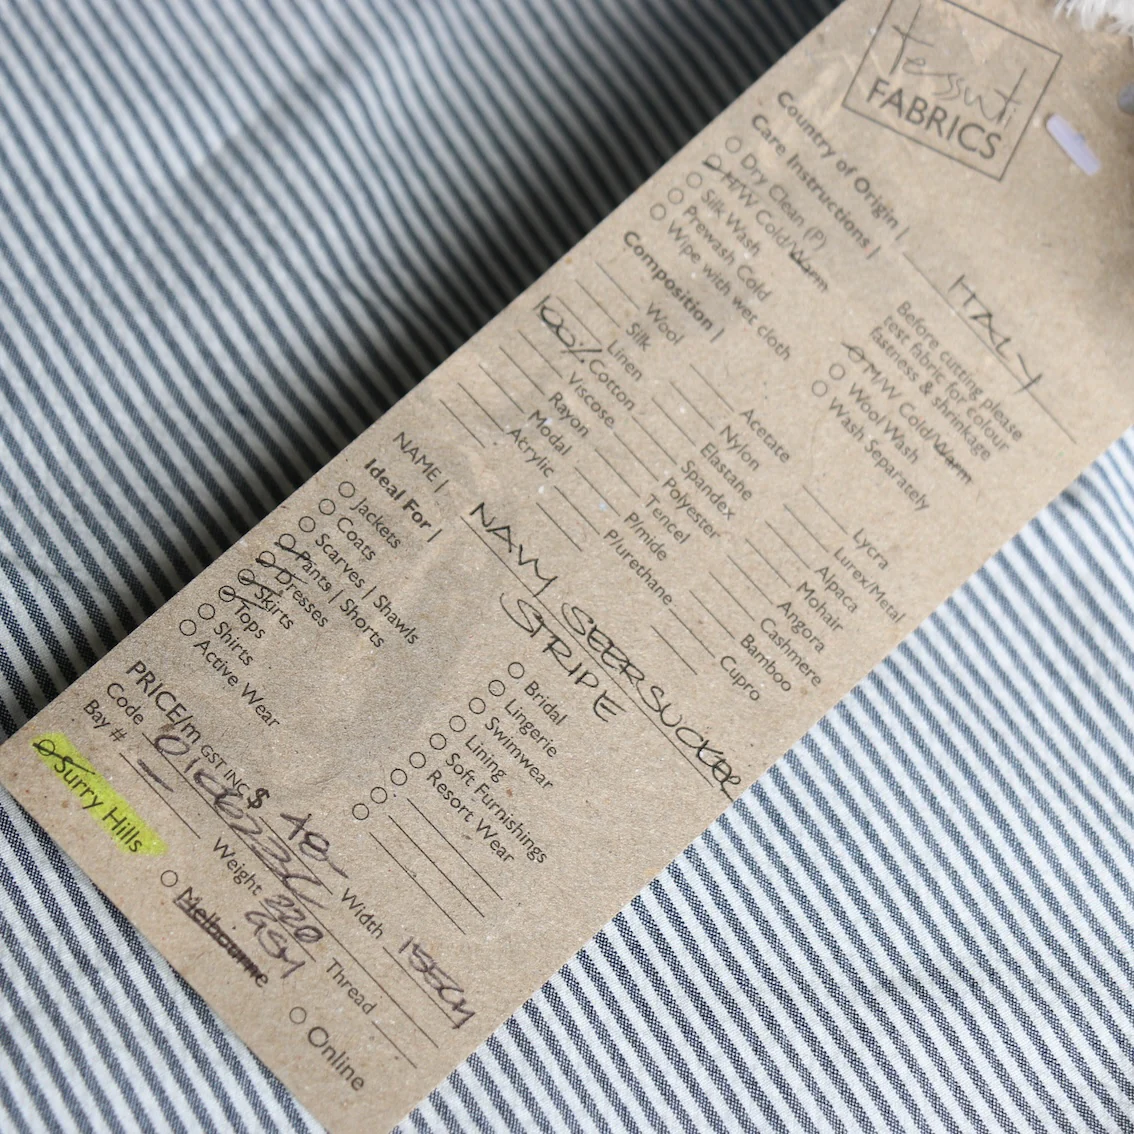 tessuti
FABRICS
Country of Origin | ITALY
Care Instructions |
Dry Clean (P)
H/W Cold/Warm
Silk Wash
Prewash Cold
Wipe with wet cloth
Before cutting please
test fabric for colour
fastness & shrinkage
M/W Cold/Warm
Wool Wash
Wash Separately
Composition |
Wool
Silk
Linen
100% Cotton
Viscose
Rayon
Modal
Acrylic
Acetate
Nylon
Elastane
Spandex
Polyester
Tencel
P/mide
P/urethane
Lycra
Lurex/Metal
Alpaca
Mohair
Angora
Cashmere
Bamboo
Cupro
NAME | NAVY SEERSUCKER
STRIPE
Ideal For |
Jackets
Coats
Scarves | Shawls
Pants | Shorts
Dresses
Skirts
Tops
Shirts
Active Wear
Bridal
Lingerie
Swimwear
Lining
Soft Furnishings
Resort Wear
PRICE/m GST INC $ 48- Width 155CM
Code
Weight 220
GSM
Thread
Bay # -
Surry Hills
Melbourne
Online